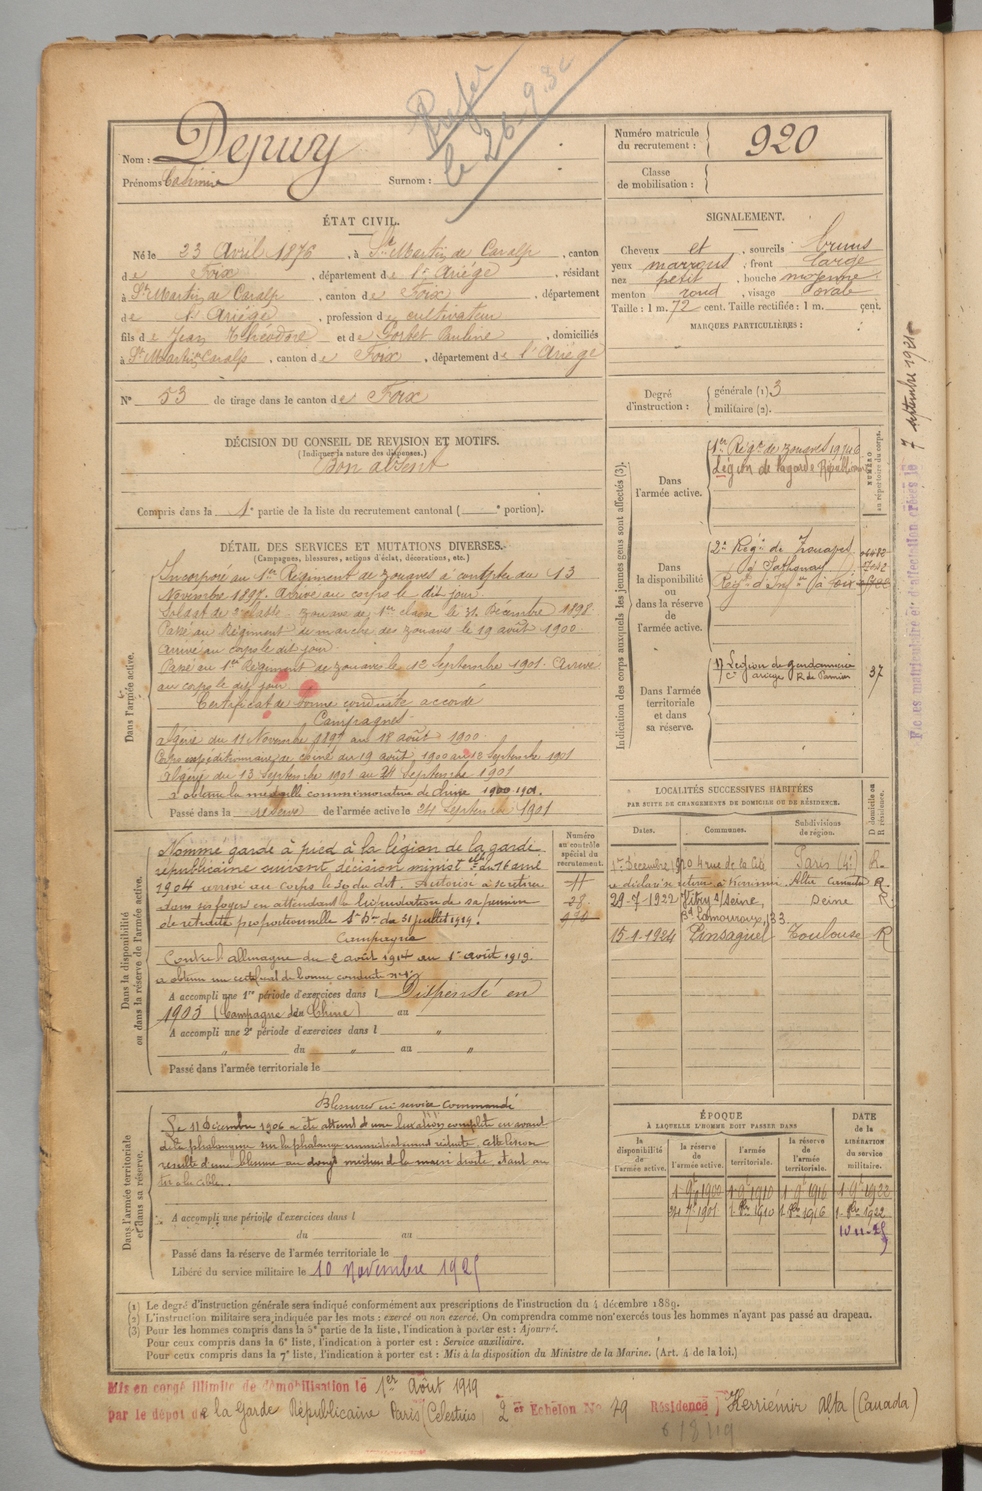 le 26-9-3
Nom : Depuy
Prénoms Casimir Surnom :
Numéro matricule du recrutement : 920
Classe de mobilisation :
ÉTAT CIVIL.
Né le 23 Avril 1876, à St Martin de Caralp, canton
de Foix, département de l'Ariège, résidant
à St Martin de Caralp, canton de Foix, département
de l'Ariège, profession de cultivateur
fils de Jean Théodore et de Gorbet Pauline, domiciliés
à St Martin Caralp, canton de Foix, département de l'Ariège
N° 53 de tirage dans le canton de Foix
SIGNALEMENT.
Cheveux et, sourcils bruns
yeux marrons, front large
nez petit, bouche moyenne
menton rond, visage ovale
Taille : 1 m. 72 cent. Taille rectifiée : 1 m. cent.
MARQUES PARTICULIÈRES :
Degré d'instruction : générale (1) 3
militaire (2).
DÉCISION DU CONSEIL DE REVISION ET MOTIFS.
(Indiquer la nature des dispenses.)
Bon absent
Compris dans la 1e partie de la liste du recrutement cantonal ( e portion).
DÉTAIL DES SERVICES ET MUTATIONS DIVERSES.
(Campagnes, blessures, actions d'éclat, décorations, etc.)
Dans l'armée active.
Incorporé au 1er Régiment de zouaves à compter du 13
Novembre 1897. Arrivé au corps le dit jour.
Soldat de 2e classe. Zouave de 1re classe le 31 Décembre 1898.
Passé au Régiment de marche des zouaves le 19 août 1900
arrivé au corps le dit jour.
Passé au 1er Régiment de zouaves le 12 Septembre 1901. Arrivé
au corps le dit jour.
Certificat de bonne conduite accordé
Campagnes
Algérie du 11 Novembre 1897 au 18 août 1900
Corps expéditionnaire de Chine du 19 août 1900 au 12 Septembre 1901
Algérie du 13 Septembre 1901 au 24 Septembre 1901
a obtenu la médaille commémorative de Chine 1900 1901.
Passé dans la réserve de l'armée active le 24 Septembre 1901
Indication des corps auxquels les jeunes gens sont affectés (3).
NUMÉRO au répertoire du corps.
Dans l'armée active.
1er Régt de zouaves
Légion de la garde Républicaine
Dans la disponibilité ou dans la réserve de l'armée active.
2e Régt de Zouaves
à Sathonay
Regt d'Infie à Foix
Dans l'armée territoriale et dans sa réserve.
17 Légion de gendarmerie
Cie ariège R. de Pamiers 37
Fiches matriculaire et d'affectation créées le 7 septembre 1921
LOCALITÉS SUCCESSIVES HABITÉES
PAR SUITE DE CHANGEMENTS DE DOMICILE OU DE RÉSIDENCE.
Dates. Communes. Subdivisions de région. D domicile ou R résidence.
4 rue de la Cité Paris (4e) R
R
29-7-1922 Vitry s/Seine, Seine R
Bd Lamouroux, 33
15-1-1924 Pinsaguel Toulouse R
Dans la disponibilité ou dans la réserve de l'armée active.
Numéro au contrôle spécial du recrutement.
Nommé garde à pied à la légion de la garde
républicaine suivant décision ministelle du 16 avril
1904 arrivé au corps le 30 du dit. Autorisé à se retirer
dans ses foyers en attendant la liquidation de sa pension
de retraite proportionnelle. 31 juillet 1919.
Campagnes
Contre l'allemagne du 2 août 1914 au 1er août 1919.
a obtenu un certificat de bonne conduite
A accompli une 1re période d'exercices dans l Dispensé en
1903 (Campagne de Chine) au
A accompli une 2e période d'exercices dans l "
" du " au "
Passé dans l'armée territoriale le
Dans l'armée territoriale et dans sa réserve.
Blessures en service commandé
Le 11 Décembre 1906 a été atteint d'une luxation complète en avant
de la phalangine sur la phalange immédiatement réduite. Cette lésion
résulte d'une blessure au doigt médius de la main droite, étant au
tir à la cible.
A accompli une période d'exercices dans l
du au
Passé dans la réserve de l'armée territoriale le
Libéré du service militaire le 10 novembre 1925
ÉPOQUE
À LAQUELLE L'HOMME DOIT PASSER DANS
DATE de la LIBÉRATION du service militaire.
la disponibilité de l'armée active. la réserve de l'armée active. l'armée territoriale. la réserve de l'armée territoriale.
1 9e 1900 1 9e 1910 1 9e 1916 1 9e 1922
1901 1910 1916 1922
10-11-25
(1) Le degré d'instruction générale sera indiqué conformément aux prescriptions de l'instruction du 4 décembre 1889.
(2) L'instruction militaire sera indiquée par les mots : exercé ou non exercé. On comprendra comme non exercés tous les hommes n'ayant pas passé au drapeau.
(3) Pour les hommes compris dans la 5e partie de la liste, l'indication à porter est : Ajourné.
Pour ceux compris dans la 6e liste, l'indication à porter est : Service auxiliaire.
Pour ceux compris dans la 7e liste, l'indication à porter est : Mis à la disposition du Ministre de la Marine. (Art. 4 de la loi.)
Mis en congé illimité de démobilisation le 1er Août 1919
par le dépôt de la Garde Républicaine Paris (Célestins) 2e Echelon No 79 Résidence Kerriémir Alta (Canada)
6/8/19